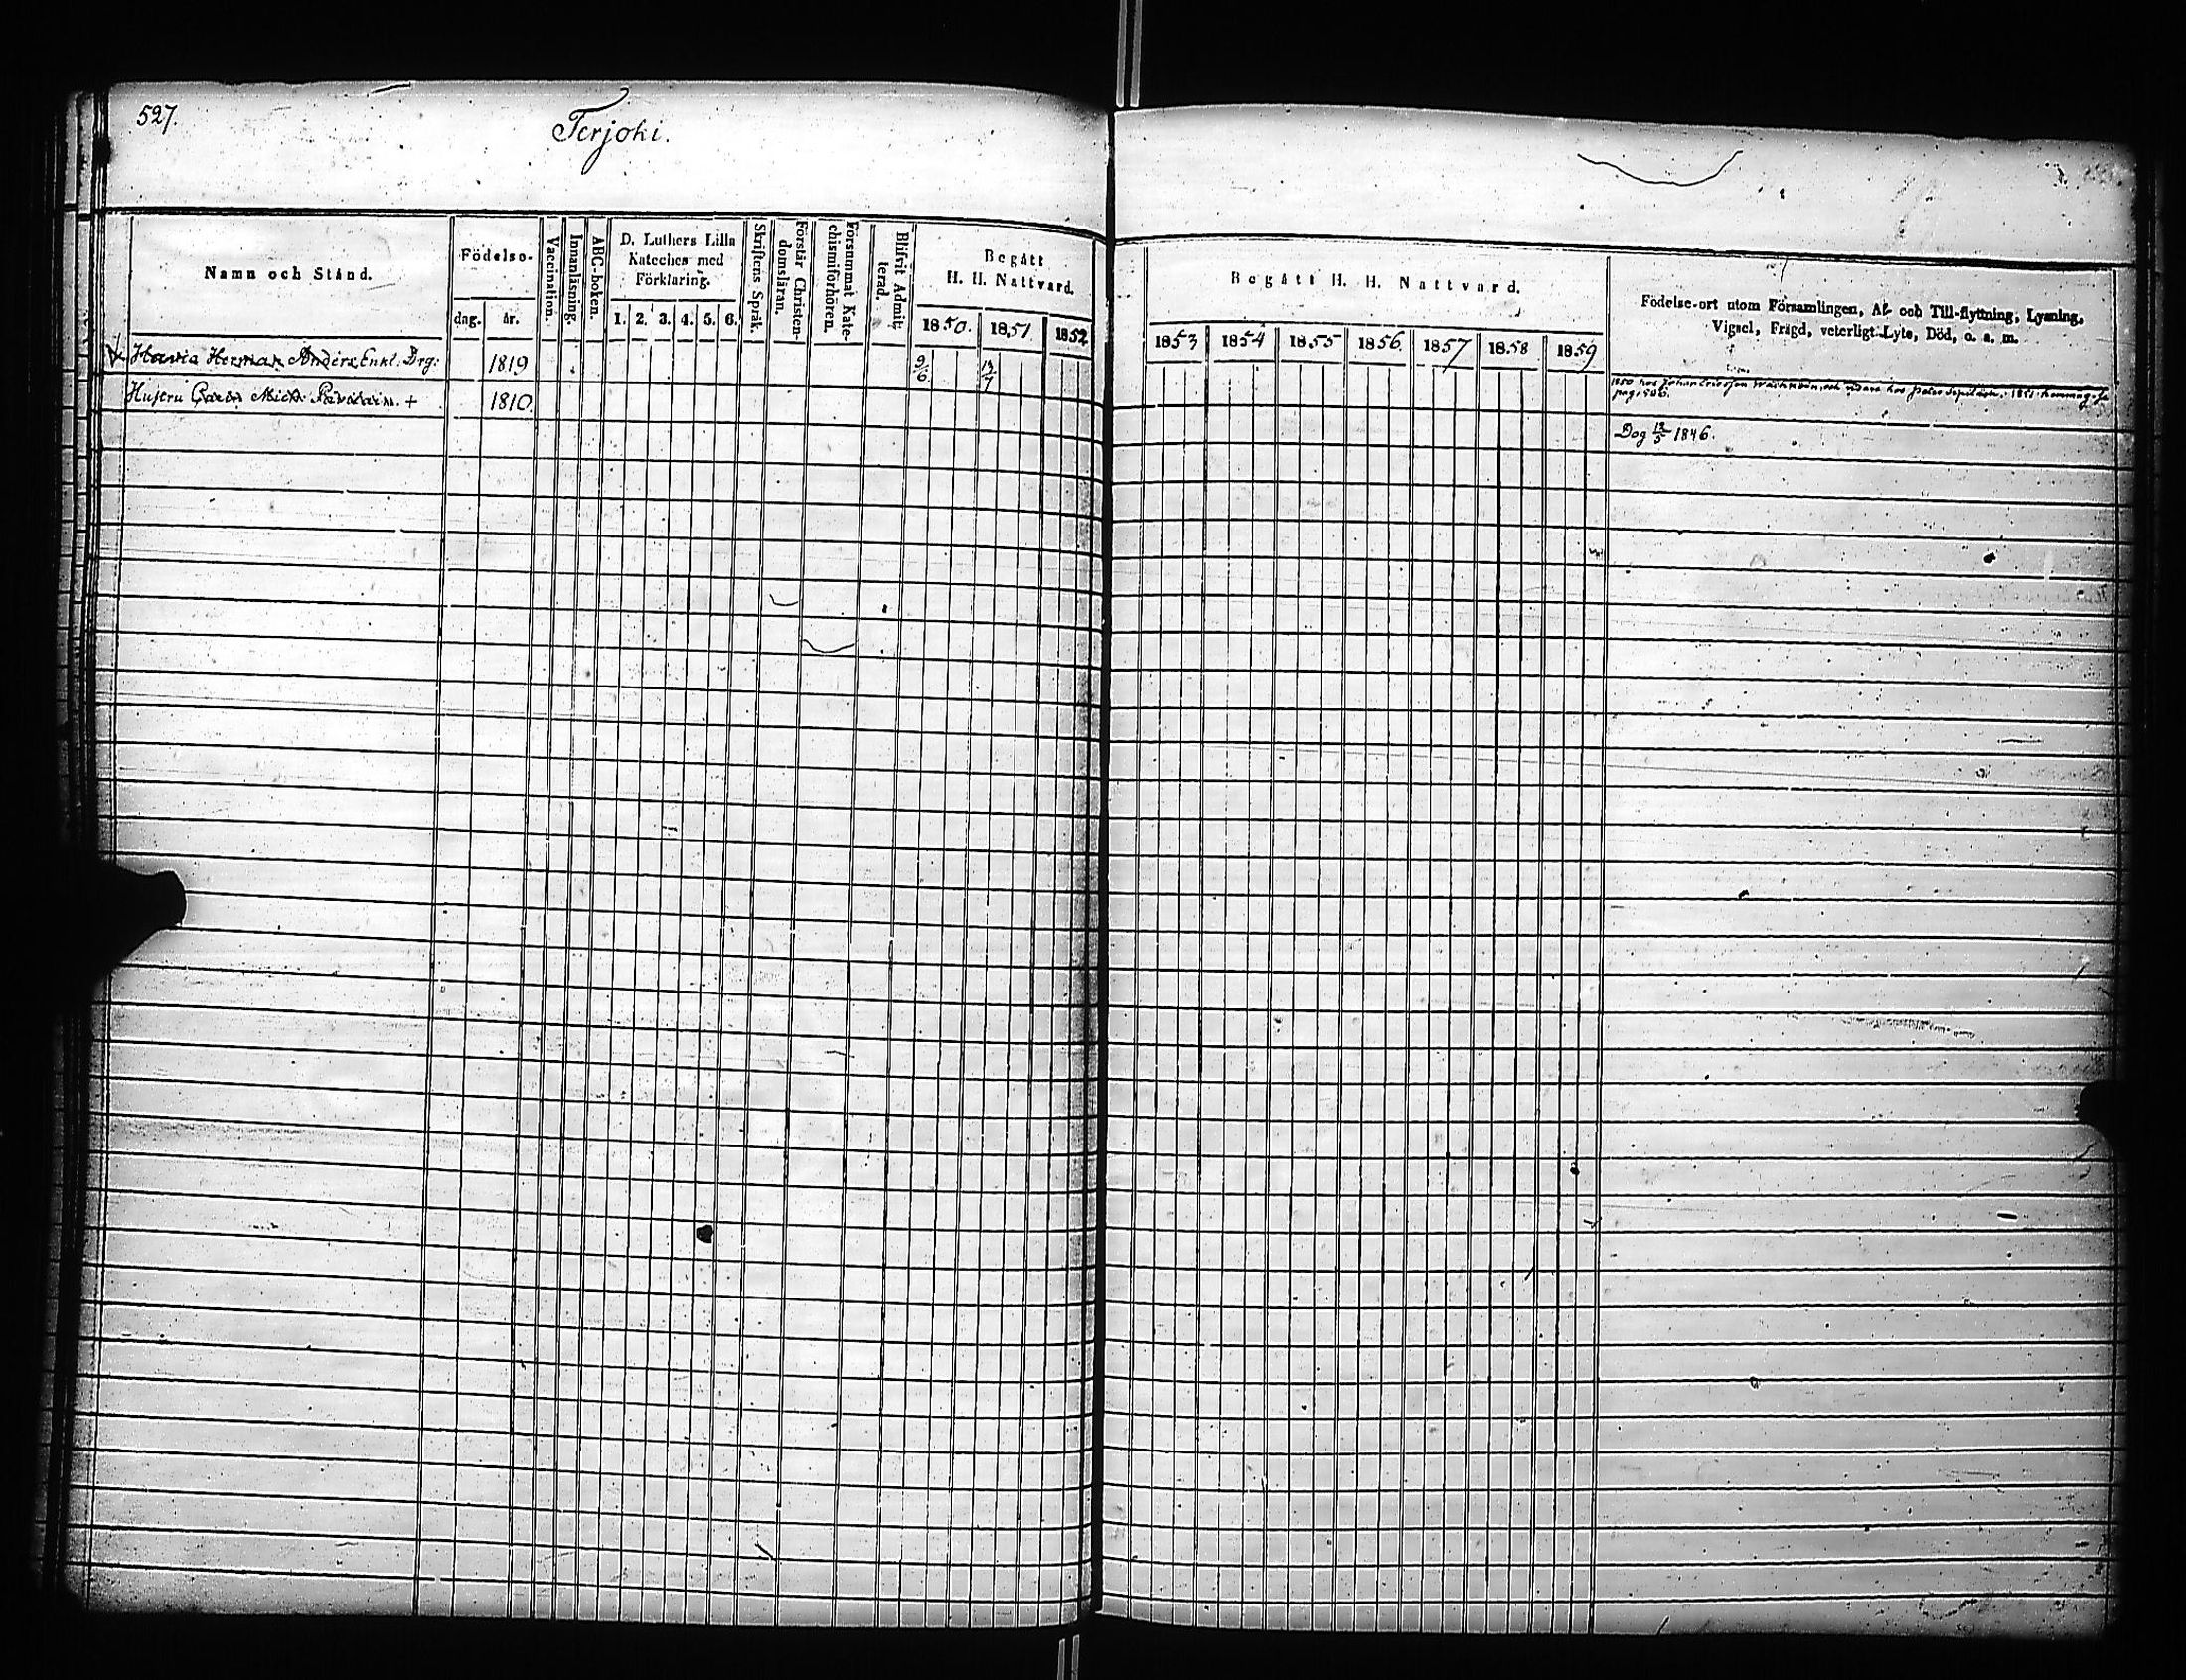 527.
Terjoki.
Namn och Stånd.
Födelse-
dag.
år.
Vaccination.
Innanläsning.
ABC-boken.
D. Luthers Lilla
Kateches med
Förklaring.
1. 2. 3. 4. 5. 6.
Skriftens Språk.
Förstår Christen-
domsläran.
Försummat Kate-
chismiförhören.
Blifvit Admit-
terad.
Begått
H. H. Nattvard.
1850. 1851 1852
Begått H. H. Nattvard.
1853 1854 1855 1856. 1857 1858 1859
Födelse-ort utom Församlingen, Af- och Till-flyttning, Lysning,
Vigsel, Frägd, veterligt Lyte, Död, o. s. m.
Herman Anders Enkl. Drg: 1819 9/6 13/7
1850 hos Johan Ericsson och hos Peter 1851
pag. 506.
Hustru Mich: + 1810.
Dog 13/5 1846.